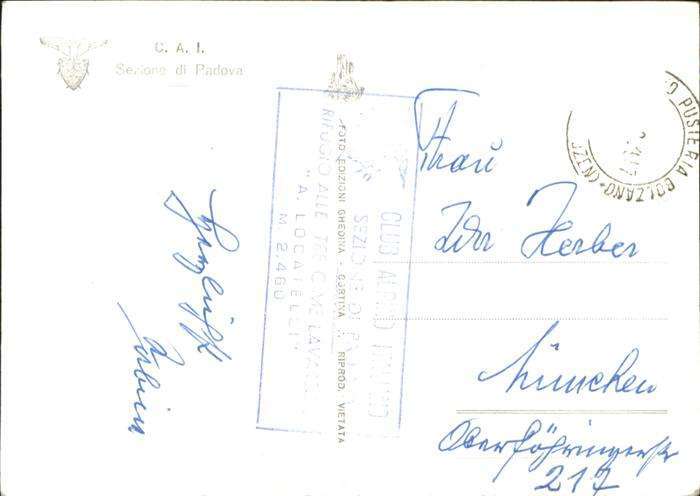 C. A. I.
Sezione di Padova
CLUB ALPINO ITALIANO
SEZIONE DI PADOVA
RIFUGIO ALLE TRE CIME LAVAREDO
"A. LOCATELLI"
M 2,460
FOTO EDIZIONI GHEDINA - CORTINA - RIPROD. VIETATA
PUSTERIA BOLZANO
Frau
Herber
München
Oberföhringerstr
217